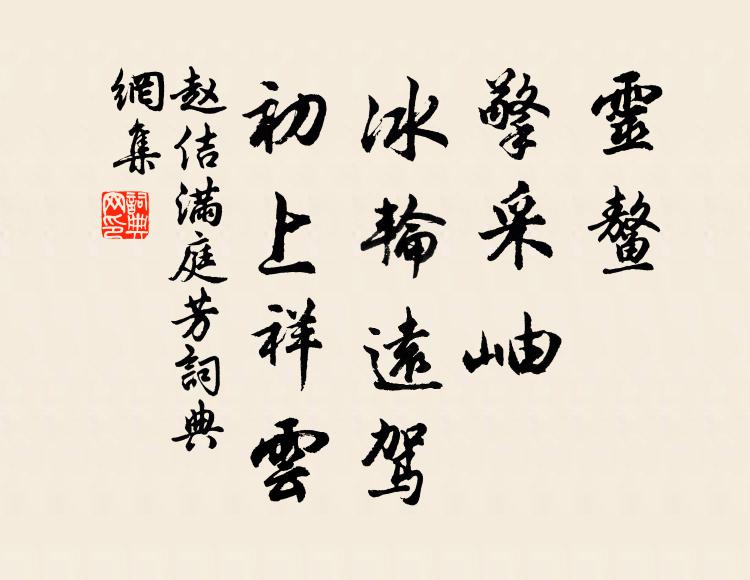 靈鰲
擎采岫
冰輪遠駕
初上祥雲
赵佶满庭芳詞典
網集
詞典
网印